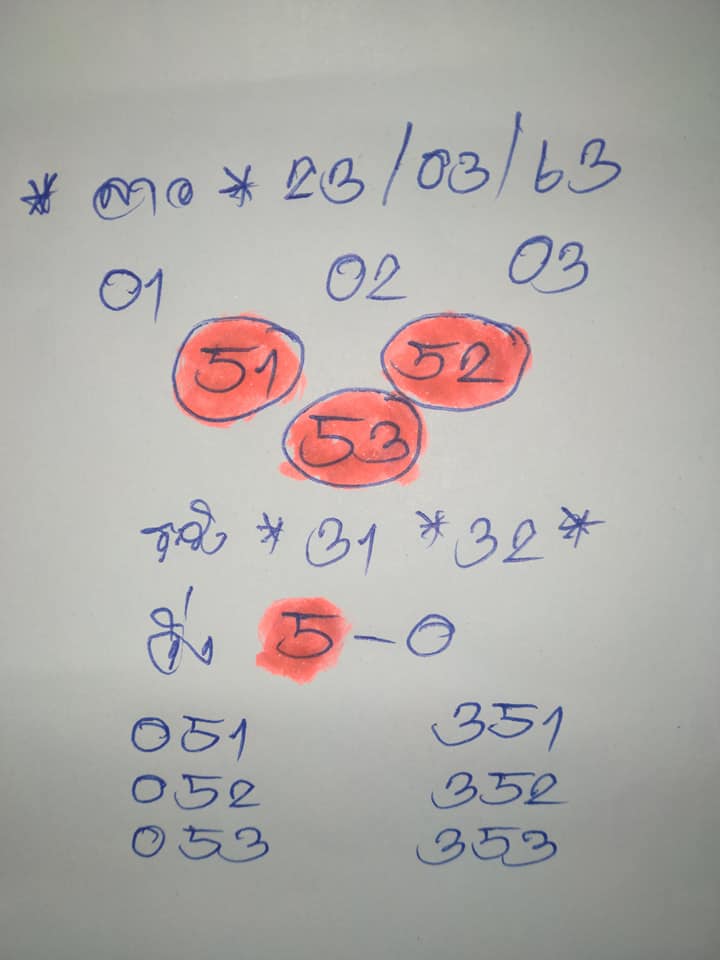 * ลาว * 23/03/63
01 02 03
51 52
53
* 31 * 32 *
5-0
051 351
052 352
053 353